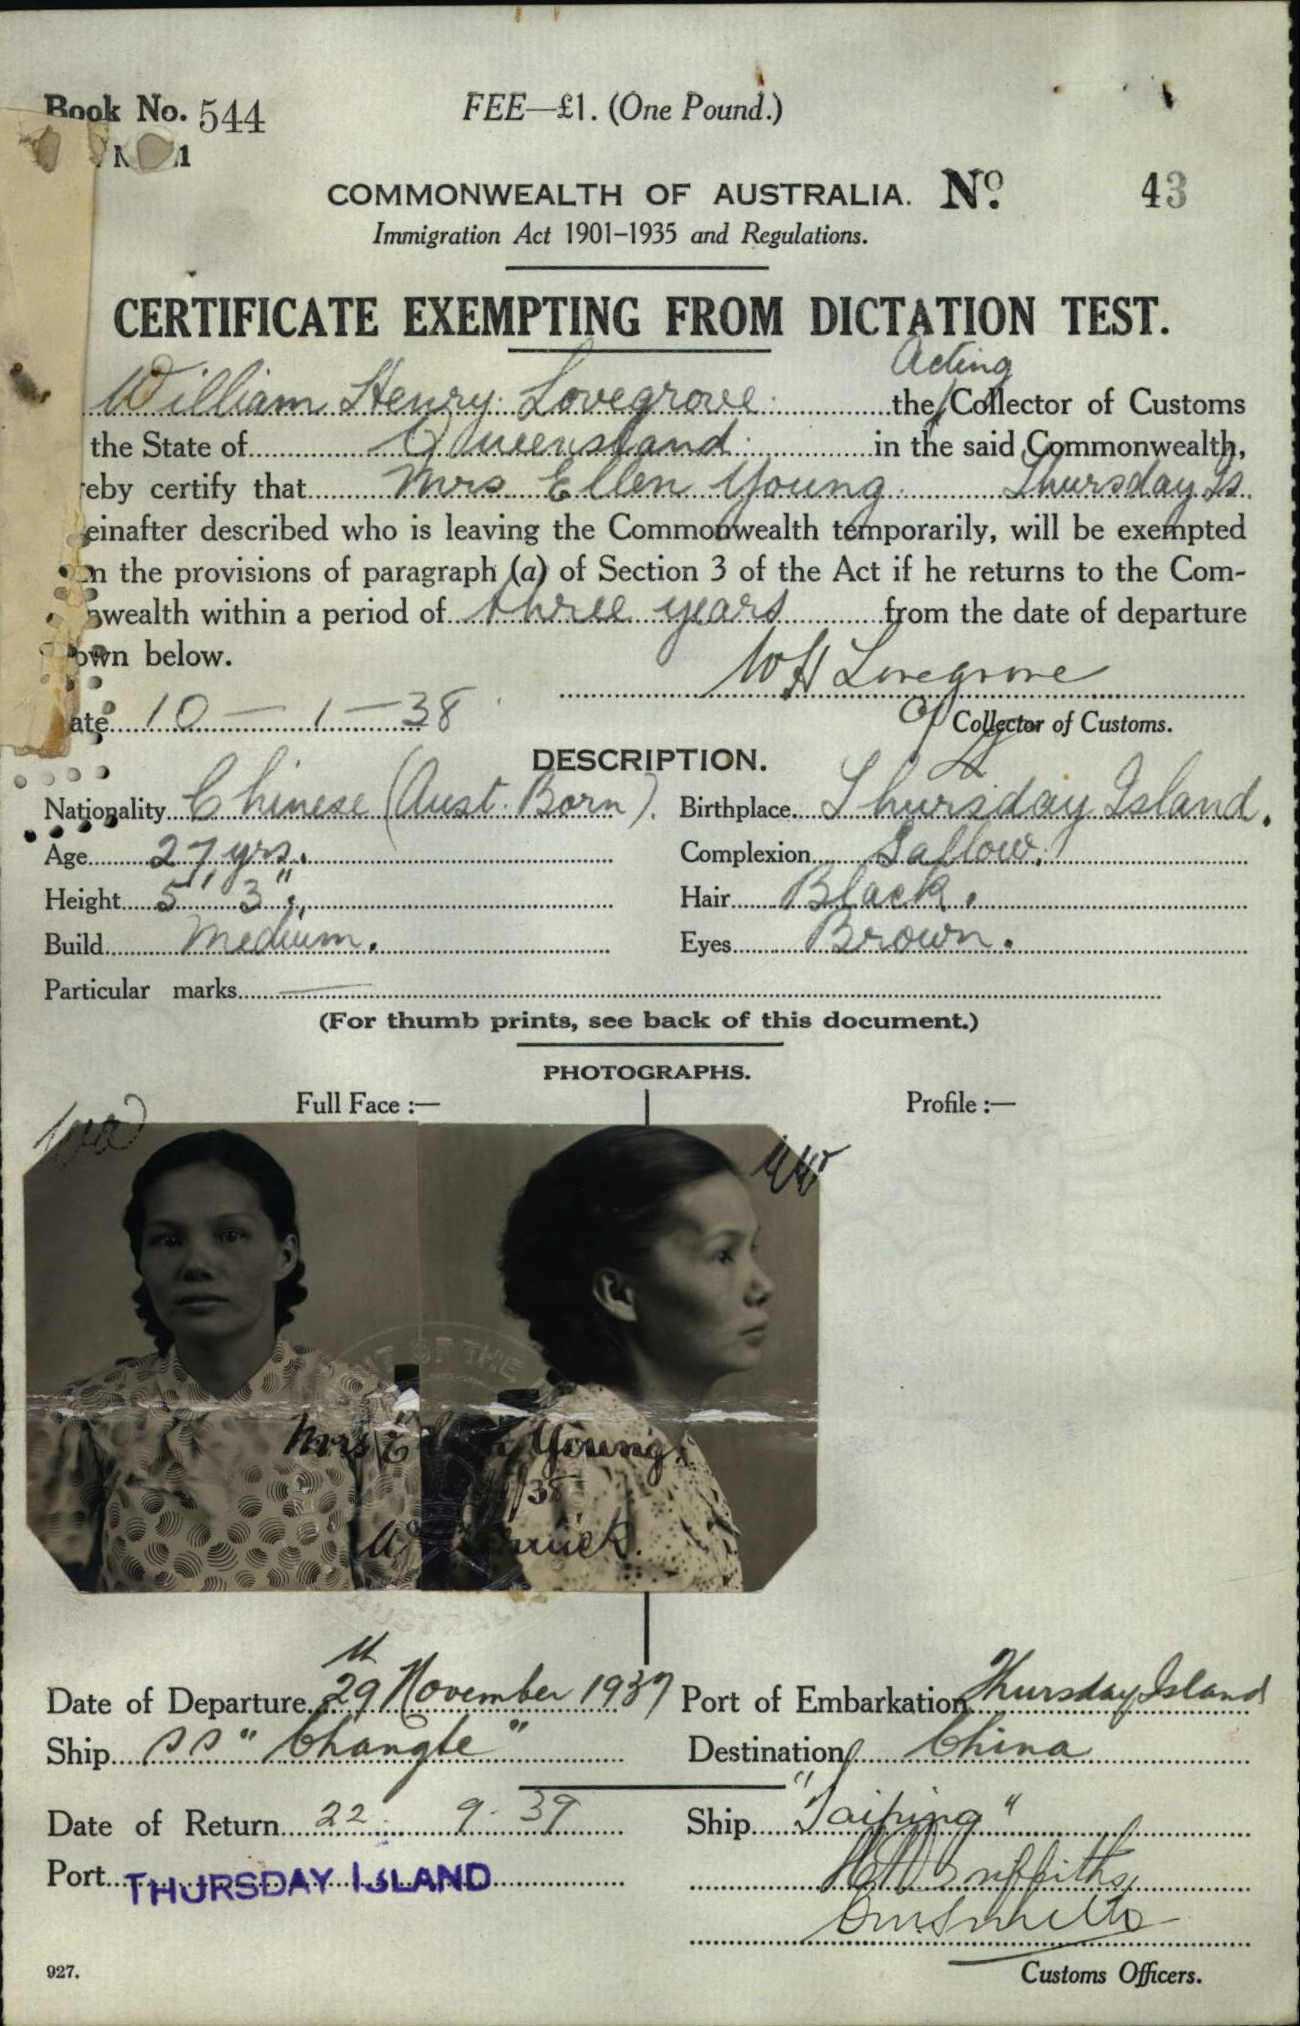 Book No. 544
FEE—£1. (One Pound.)
COMMONWEALTH OF AUSTRALIA. No. 43
Immigration Act 1901–1935 and Regulations.
CERTIFICATE EXEMPTING FROM DICTATION TEST.
Acting
William Henry Lovegrove the Collector of Customs
the State of Queensland in the said Commonwealth,
reby certify that Mrs Ellen Young Thursday Is.
einafter described who is leaving the Commonwealth temporarily, will be exempted
m the provisions of paragraph (a) of Section 3 of the Act if he returns to the Com-
nwealth within a period of three years from the date of departure
own below.
W H Lovegrove
ate 10 — 1 — 38
Collector of Customs.
DESCRIPTION.
Nationality Chinese (Aust. Born). Birthplace Thursday Island.
Age 27 yrs. Complexion Sallow.
Height 5' 3". Hair Black.
Build Medium. Eyes Brown.
Particular marks —
(For thumb prints, see back of this document.)
PHOTOGRAPHS.
Full Face :— Profile :—
OF THE
Mrs Young
Date of Departure 29th November 1937 Port of Embarkation Thursday Island
Ship SS "Changte" Destination China
Date of Return 22 . 9 . 39 Ship "Taiping"
Port THURSDAY ISLAND
Griffiths
927.
Customs Officers.